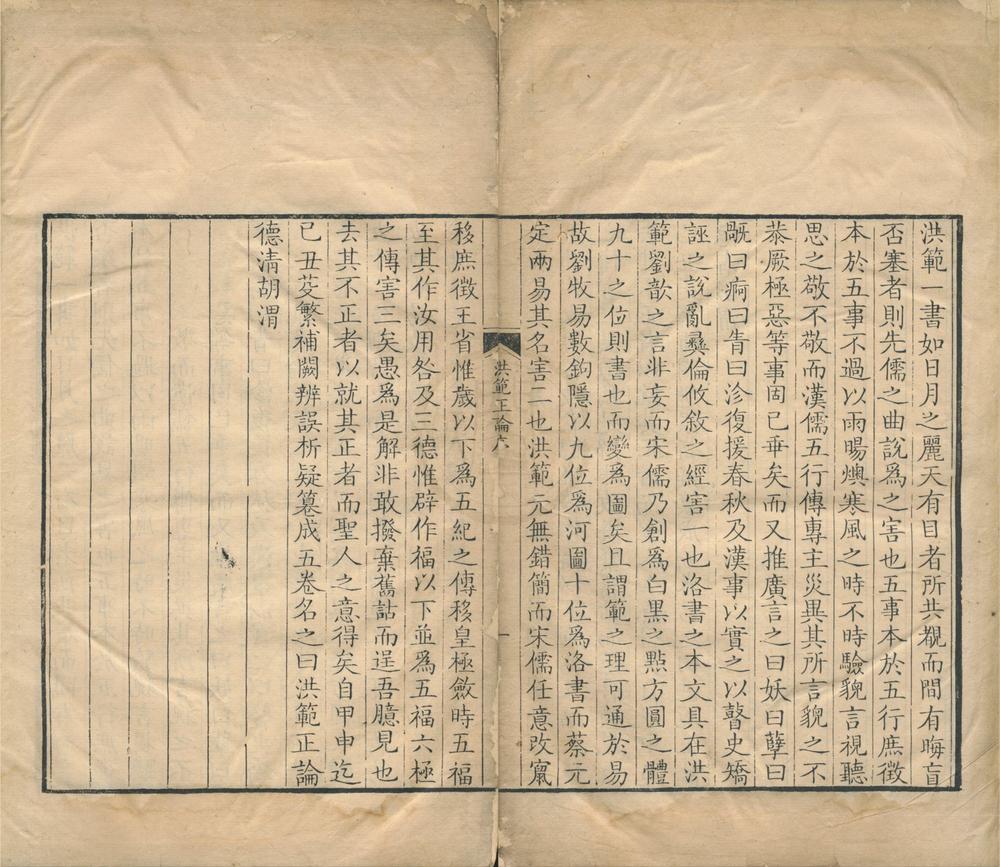 洪範一書如日月之麗天有目者所共覩而間有晦盲
否塞者則先儒之曲說爲之害也五事本於五行庶徵
本於五事不過以雨暘燠寒風之時不時驗貌言視聽
思之敬不敬而漢儒五行傳專主災異其所言貌之不
恭厥極惡等事固已乖矣而又推廣言之曰妖曰孽曰
旤曰痾曰眚曰沴復援春秋及漢事以實之以瞽史矯
誣之說亂彝倫攸敘之經害一也洛書之本文具在洪
範劉歆之言非妄而宋儒乃創爲白黑之點方圓之體
九十之位則書也而變爲圖矣且謂範之理可通於易
故劉牧易數鉤隱以九位爲河圖十位爲洛書而蔡元
定兩易其名害二也洪範元無錯簡而宋儒任意改竄
洪範正論序
一
移庶徵王省惟歲以下爲五紀之傳移皇極斂時五福
至其作汝用咎及三德惟辟作福以下並爲五福六極
之傳害三矣愚爲是解非敢撥棄舊詁而逞吾臆見也
去其不正者以就其正者而聖人之意得矣自甲申迄
已丑芟繁補闕辨誤析疑篹成五卷名之曰洪範正論
德清胡渭